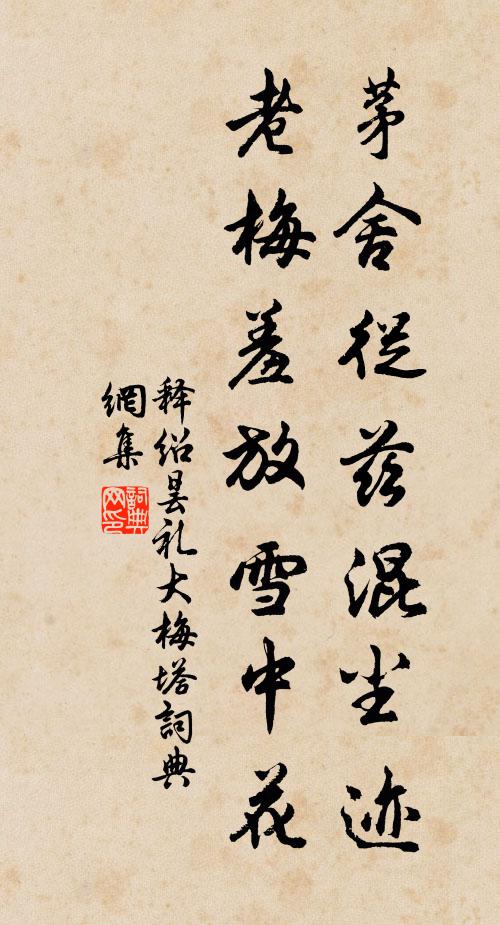 茅舍從茲混尘迹
老梅羞放雪中花
释绍昙礼大梅塔詞典
網集
詞典
网印